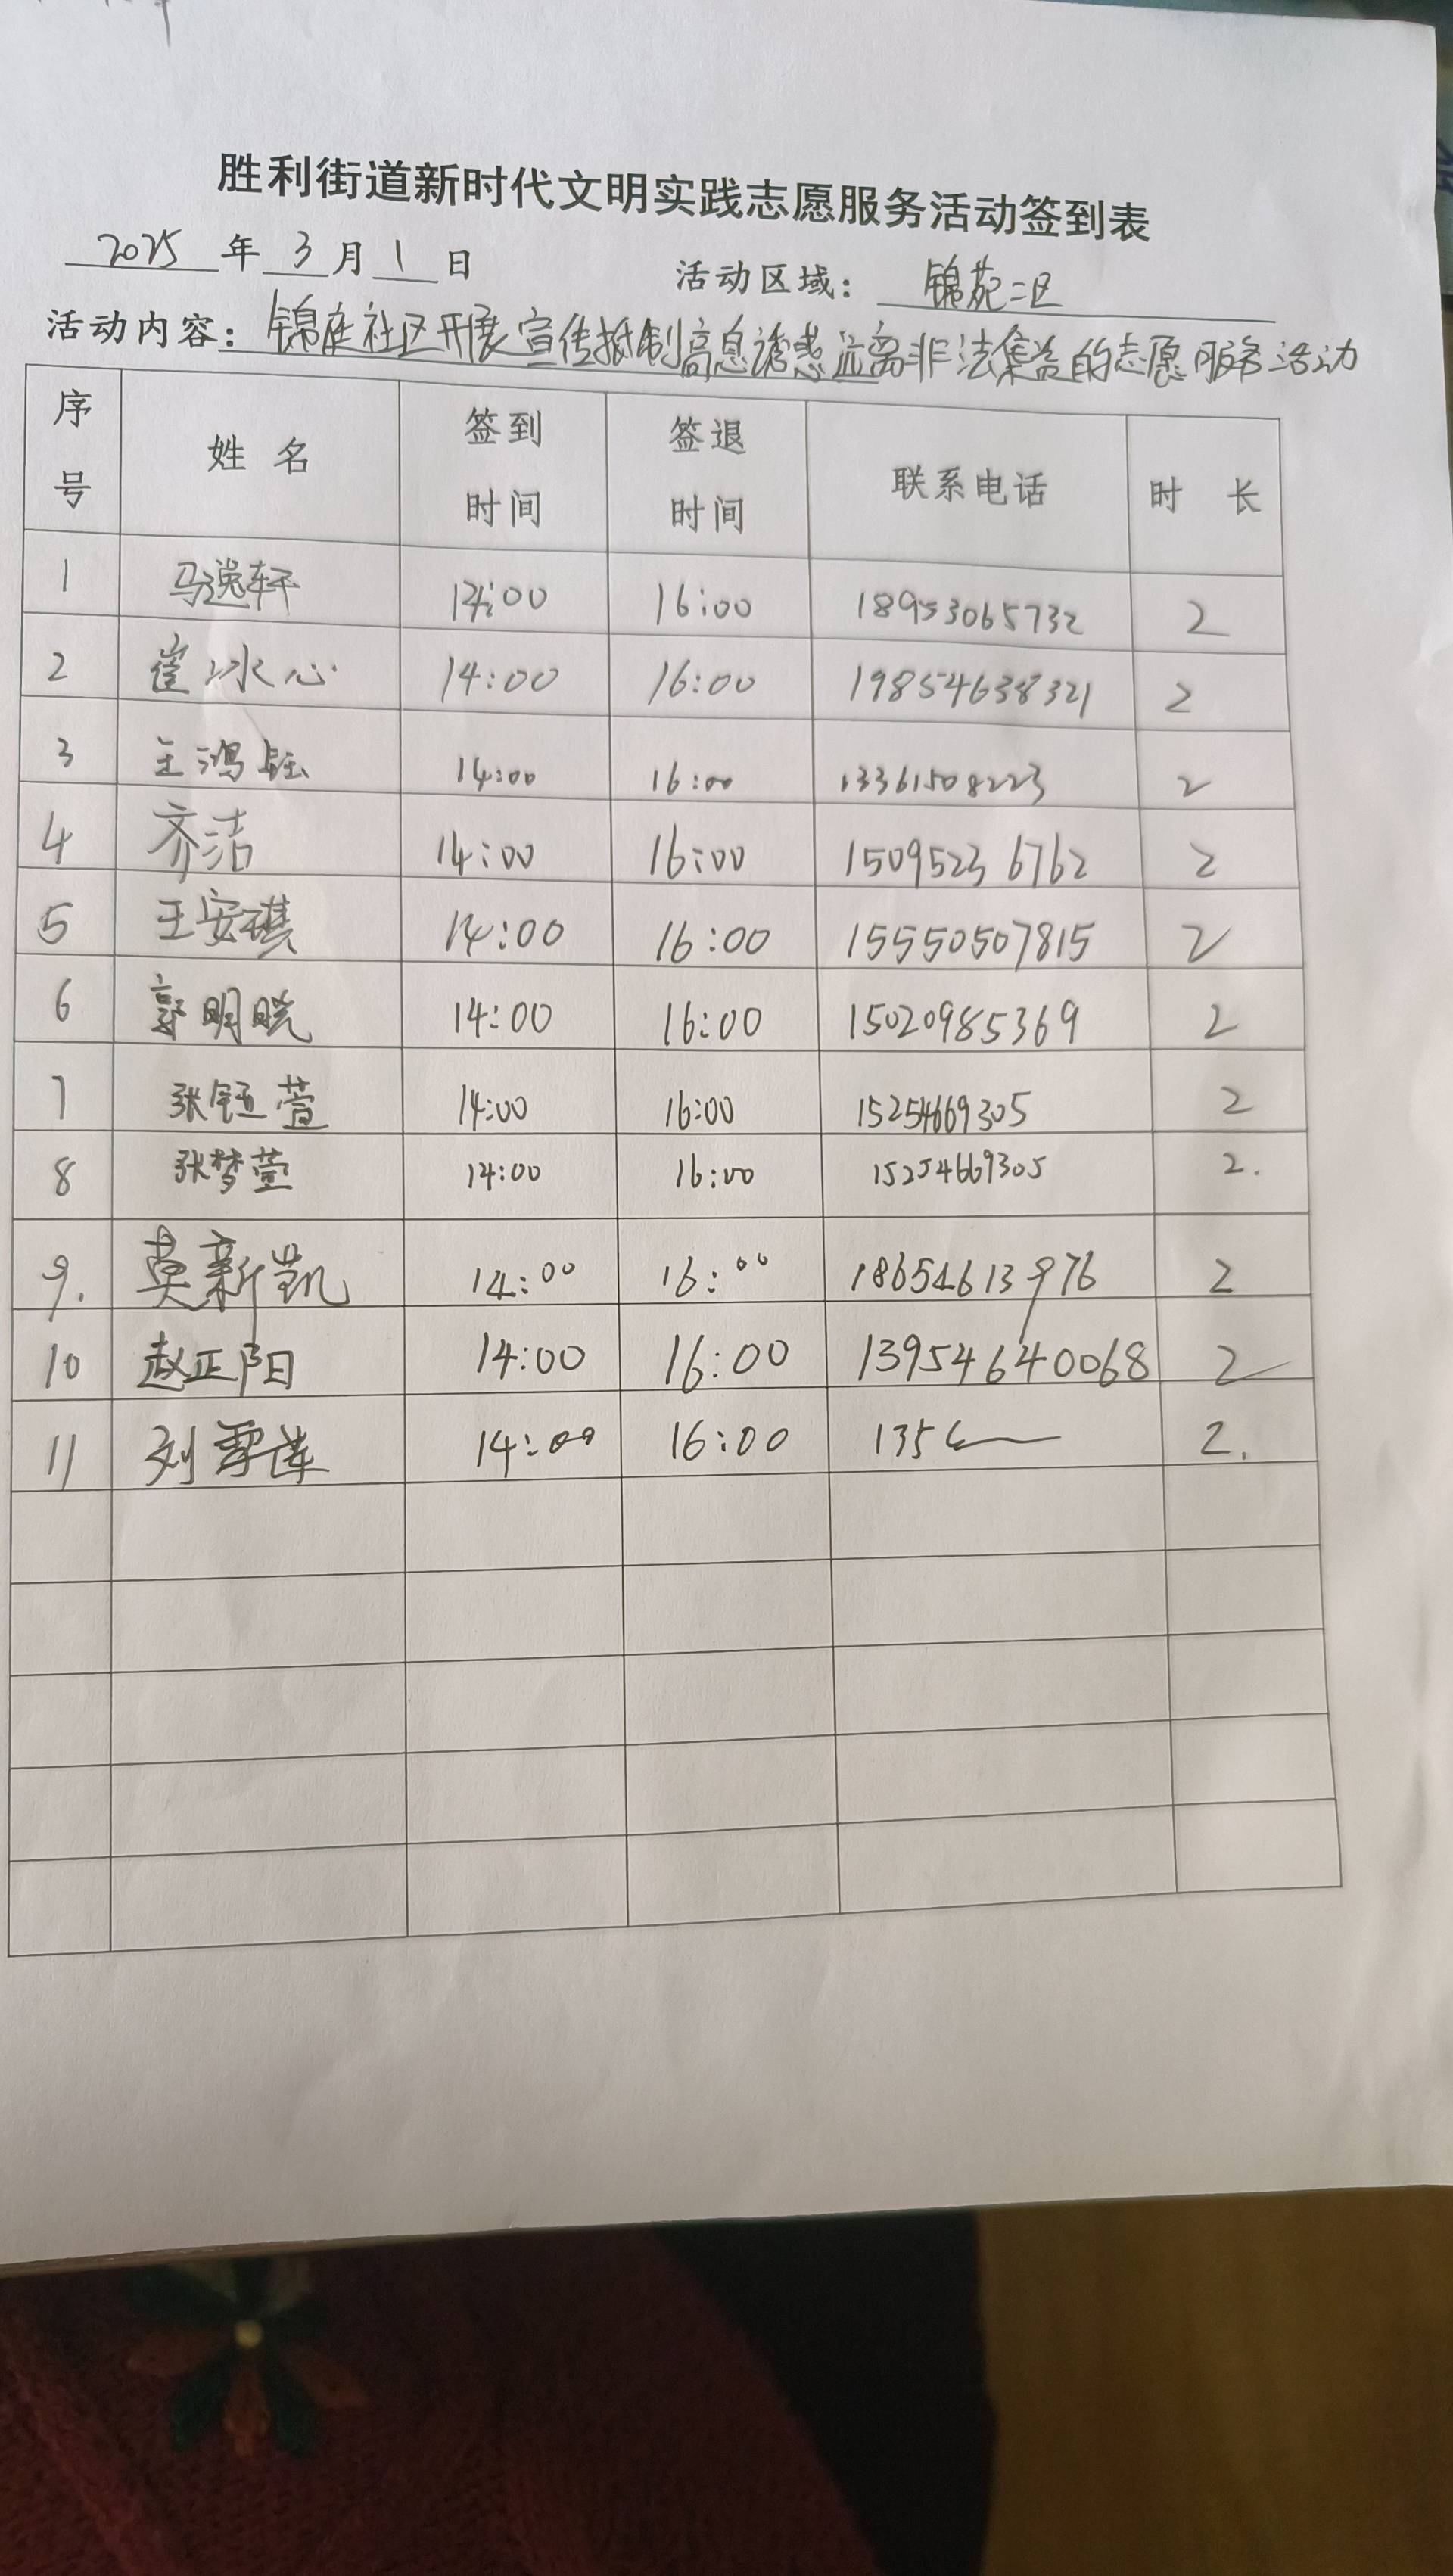 胜利街道新时代文明实践志愿服务活动签到表
2025 年 3 月 1 日 活动区域: 锦苑二区
活动内容: 锦庭社区开展宣传抵制高息诱惑远离非法集资的志愿服务活动
序号 姓名 签到时间 签退时间 联系电话 时长
1 马逸轩 14:00 16:00 18953065732 2
2 崔冰心 14:00 16:00 19854638321 2
3 王鸿钰 14:00 16:00 13361508223 2
4 齐洁 14:00 16:00 15095236762 2
5 王安琪 14:00 16:00 15550507815 2
6 郭明晓 14:00 16:00 15020985369 2
7 张钰萱 14:00 16:00 15254669305 2
8 张梦萱 14:00 16:00 15254669305 2.
9. 莫新凯 14:00 16:00 18654613976 2
10 赵正阳 14:00 16:00 13954640068 2
11 刘雪莲 14:00 16:00 135 2.